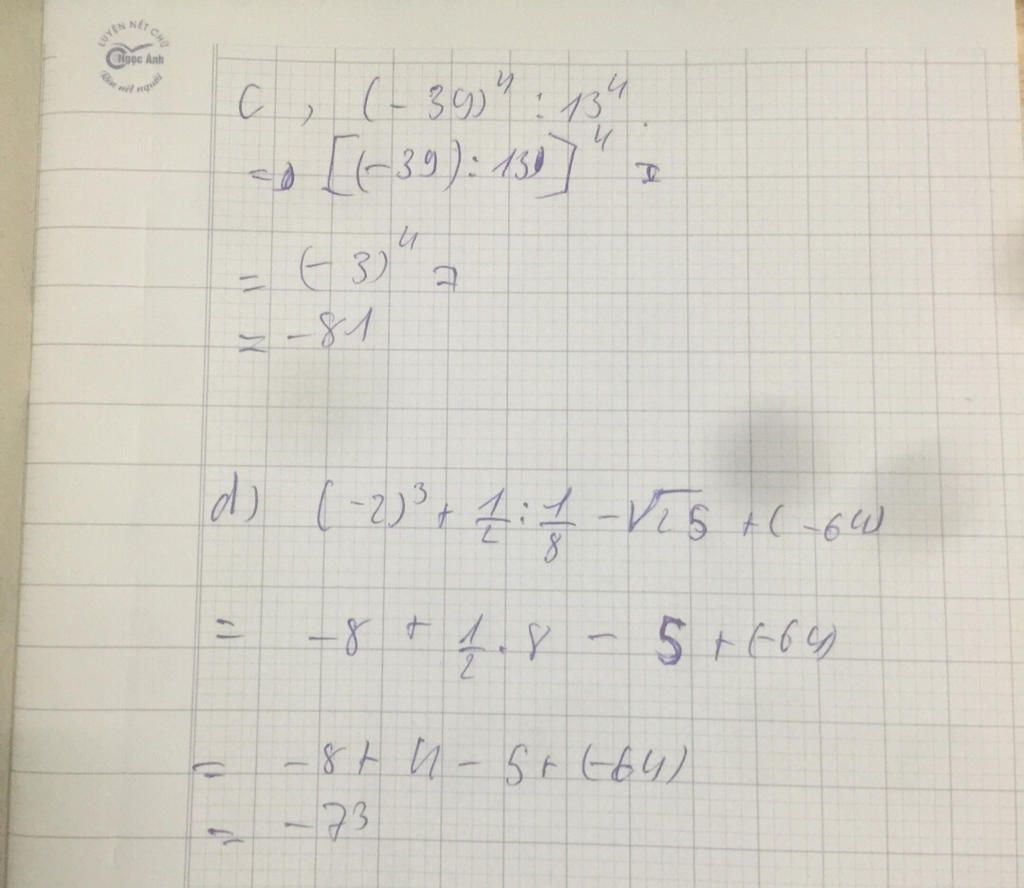 LUYỆN NẾT CHỮ
Ngọc Ánh
Rèn nết người
C, (-39)⁴ : 13⁴.
= [(-39) : 13]⁴ =
= (-3)⁴ =
= -81
d) (-2)³ + 1/2 : 1/8 - √25 + (-64)
= -8 + 1/2 . 8 - 5 + (-64)
= -8 + 4 - 5 + (-64)
= -73